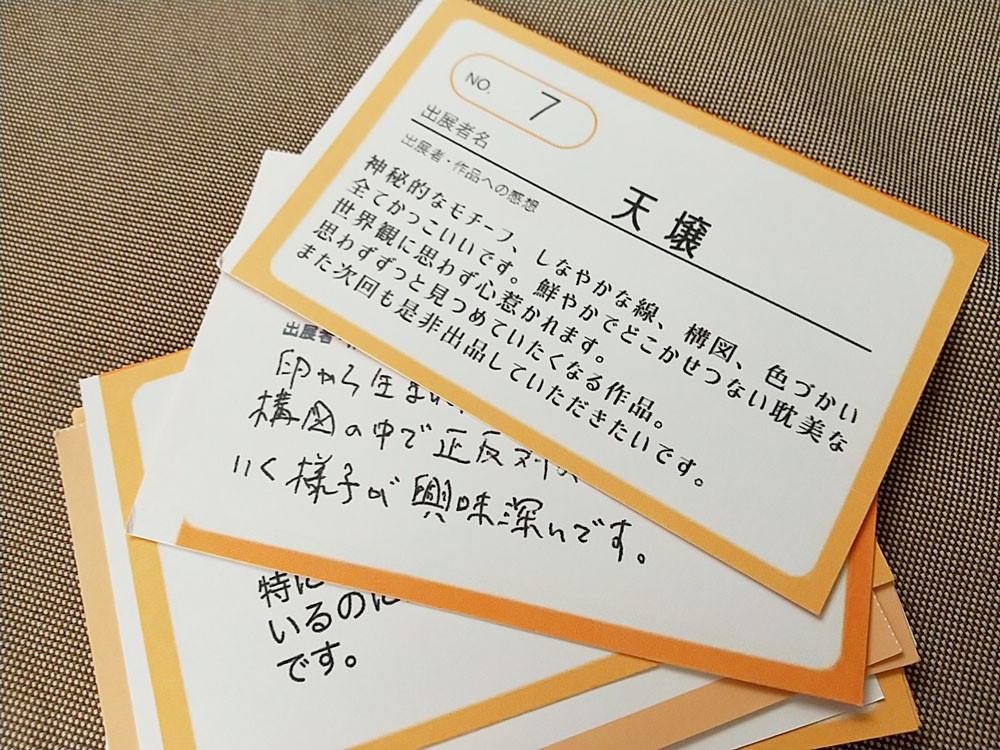 NO. 7
出展者名
天壌
出展者・作品への感想
神秘的なモチーフ、しなやかな線、構図、色づかい
全てかっこいいです。鮮やかでどこかせつない耽美な
世界観に思わず心惹かれます。
思わずずっと見つめていたくなる作品。
また次回も是非出品していただきたいです。
出展者
卵から生まれ
構図の中で正反対
いく様子が興味深いです。
特に
いるのに
です。